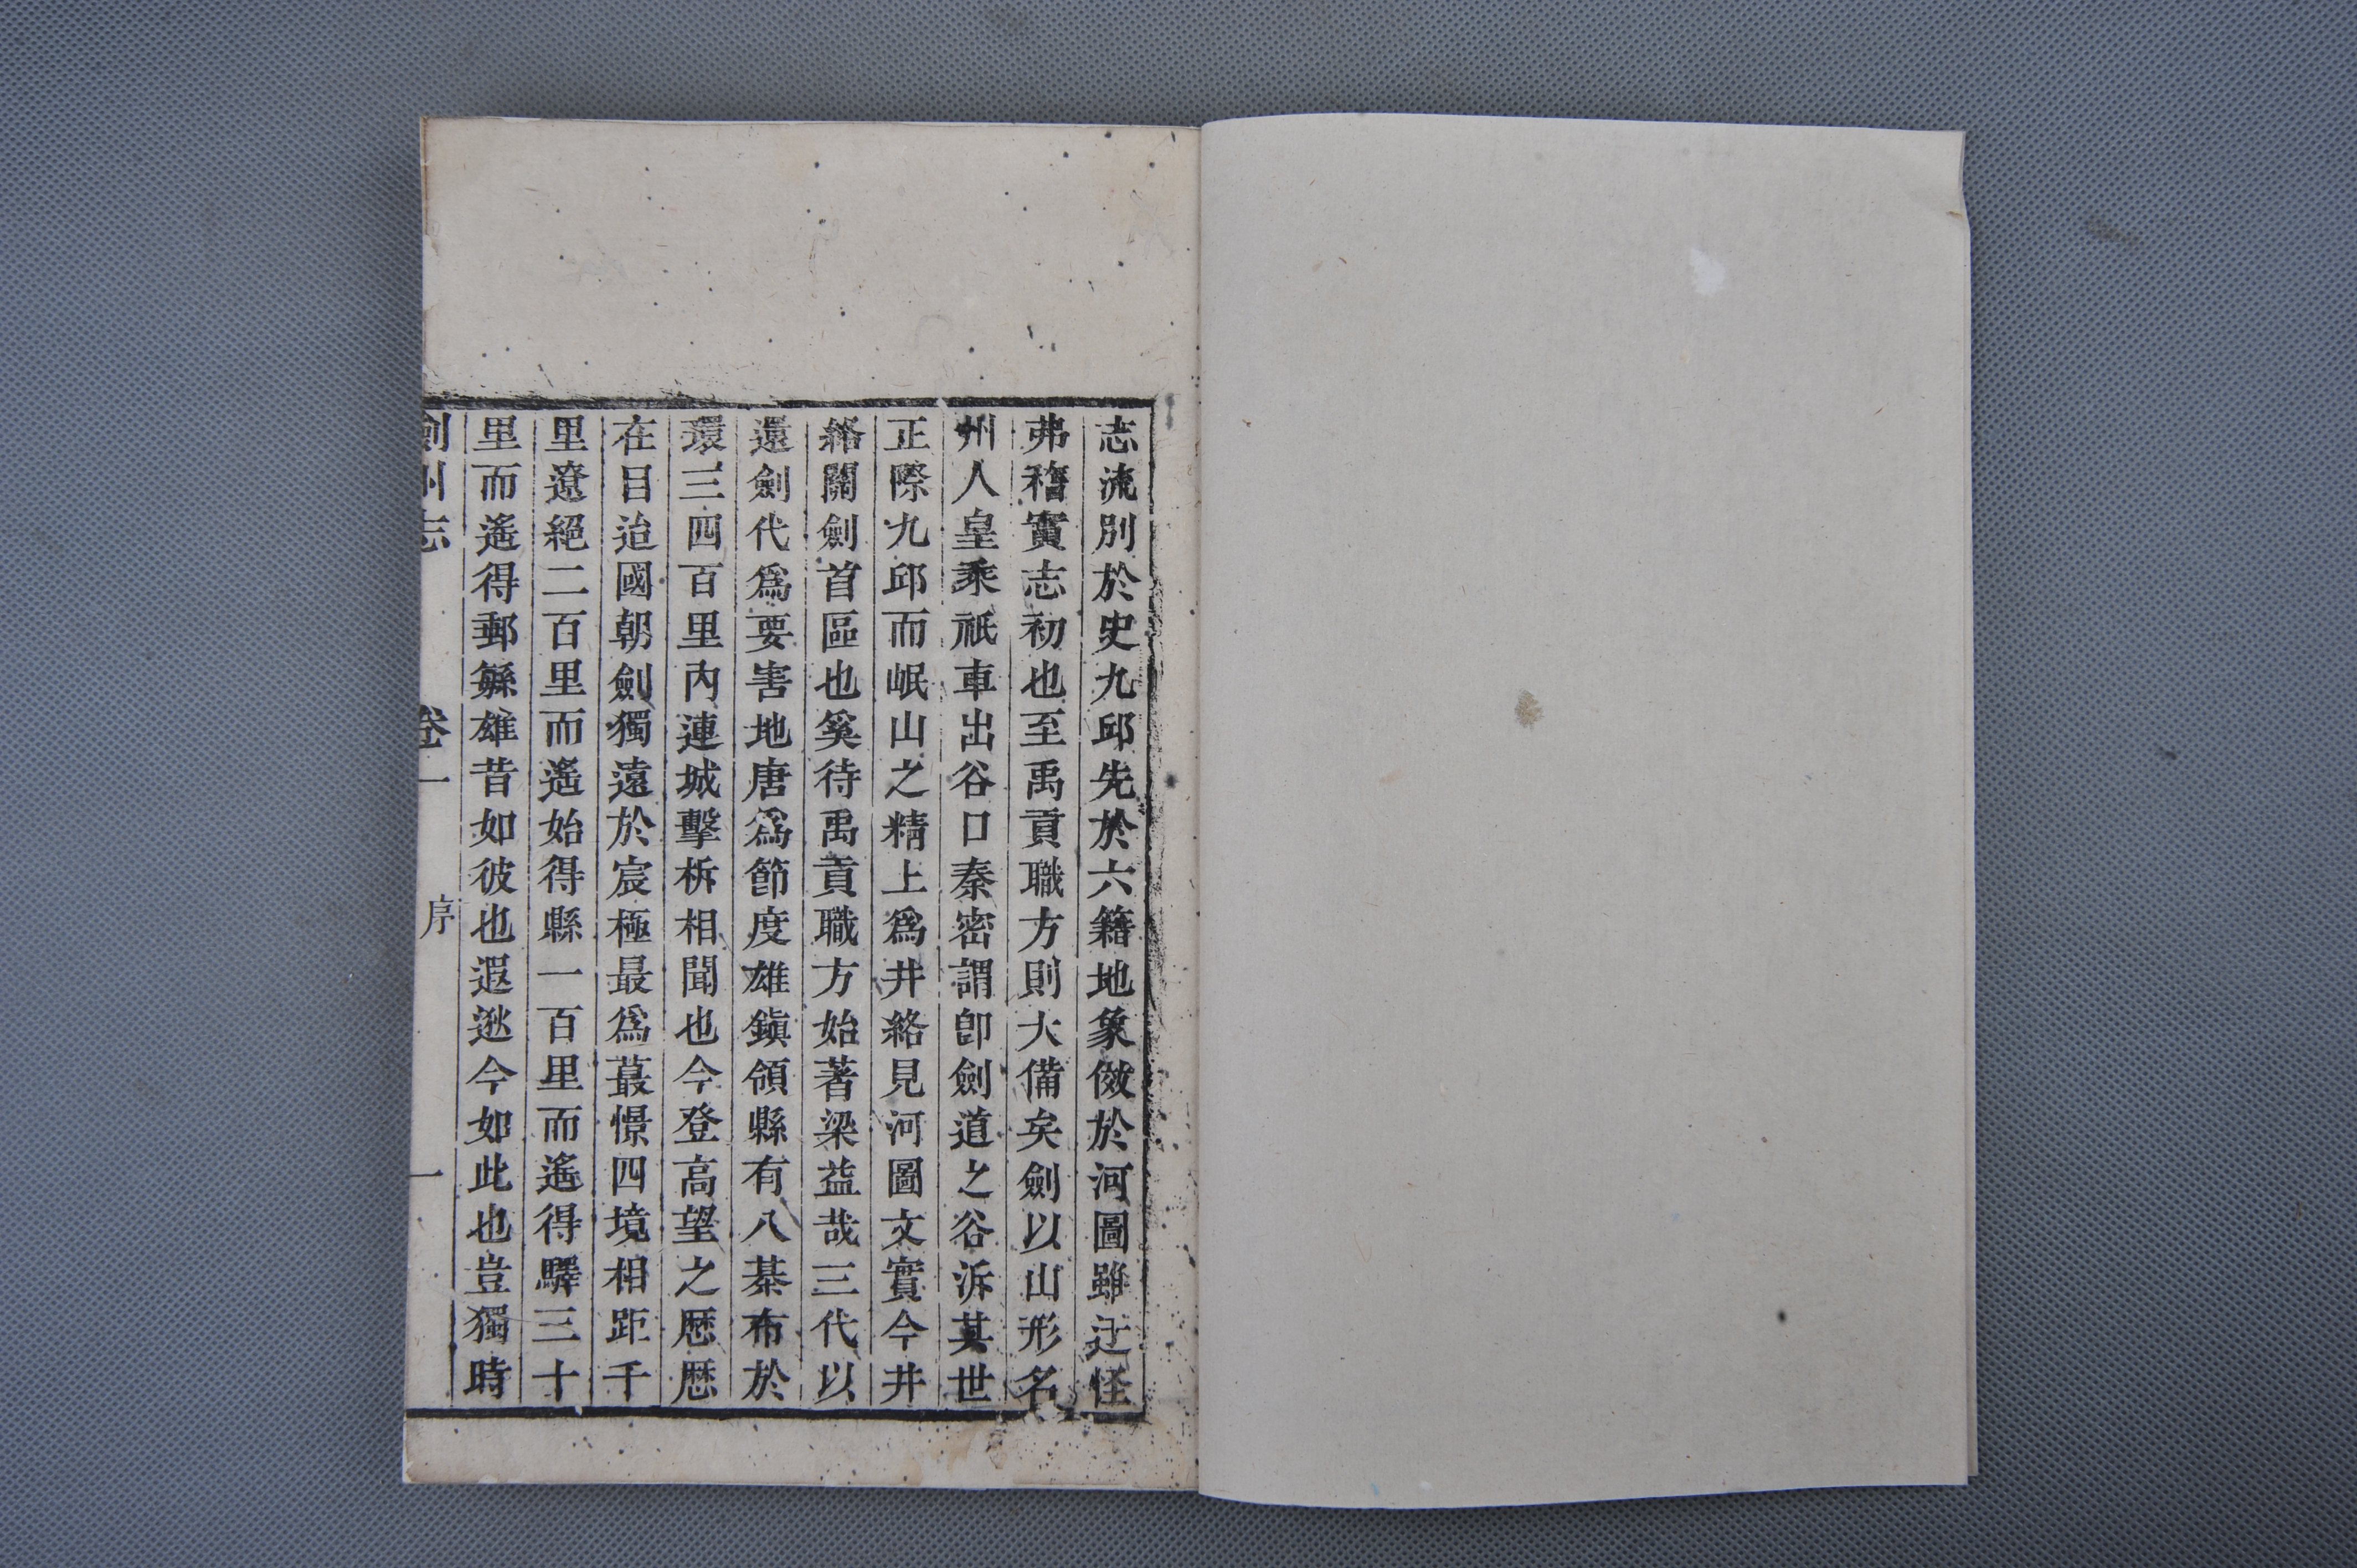 志流別於史九邱先於六籍地象倣於河圖雖迂怪
弗稽實志初也至禹貢職方則大備矣劍以山形名
州人皇乘祇車出谷口秦密謂卽劍道之谷泝其世
正際九邱而岷山之精上爲井絡見河圖文實今井
絡關劍首區也奚待禹貢職方始著梁益哉三代以
還劍代爲要害地唐爲節度雄鎭領縣有八棊布於
環三四百里內連城擊柝相聞也今登高望之歷歷
在目迨國朝劍獨遠於宸極最爲蕞憬四境相距千
里遼絕二百里而遙始得縣一百里而遙得驛三十
里而遙得郵繇雄昔如彼也遐逖今如此也豈獨時
劍州志 卷一 序 一